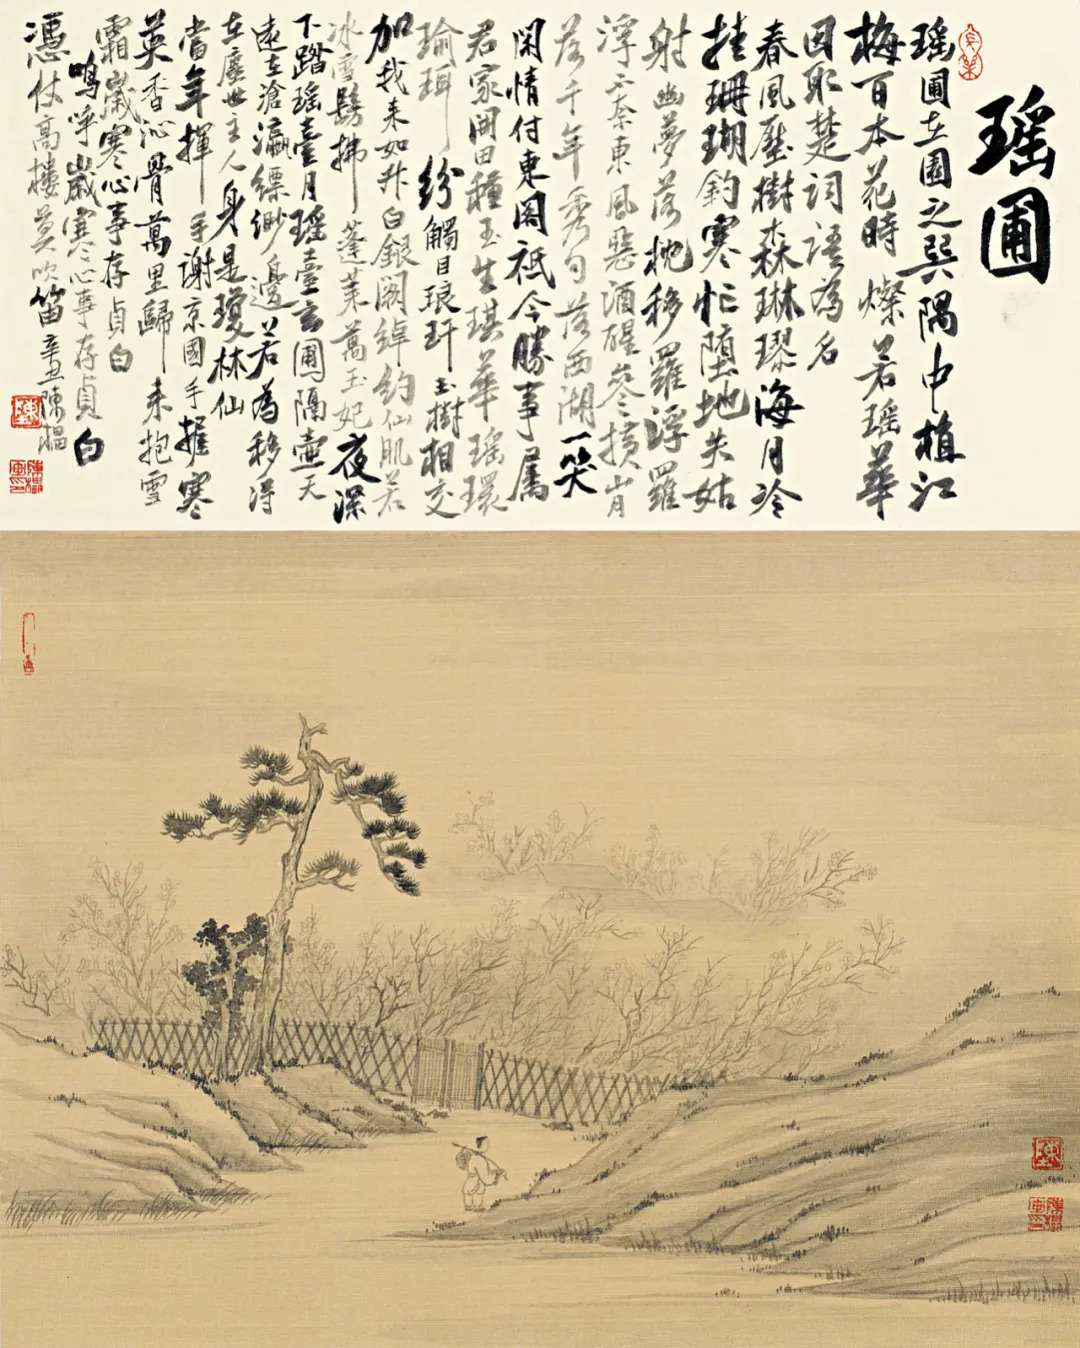 瑶圃
瑶圃在園之巽隅中植江
梅百本花時燦若瑶華
因取楚詞語為名
春風壓樹森琳璆海月冷
挂珊瑚鈎寒忙墮地失姑
射幽夢落枕移羅浮羅
浮不奈東風惡酒醒參橫山月
落千年秀句落西湖一笑
閑情付東閣祇今勝事屬
君家開田種玉生琪華瑶環
瑜珥紛觸目琅玕玉樹相交
加我來如升白銀闕綽約仙肌若
冰雪鬅拂蓬萊萬玉妃夜深
下踏瑶臺月瑶臺玄圃隔壺天
遠在滄瀛縹緲邊若為移得
在塵世主人身是瓊林仙
當年揮手謝京國手握寒
英香沁骨萬里歸來抱雪
霜歲寒心事存貞白
嗚呼歲寒心事存貞白
憑仗高樓莫吹笛 辛丑陳榲